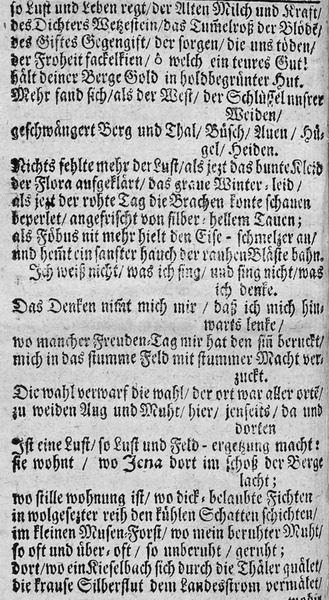 so Lust und Leben regt/ der Alten Milch und Kraft/
des Dichters Wetzestein/ das Tummelroß der Blödẽ/
des Giftes Gegengift/ der sorgen/ die uns töden/
der Froheit fackelkien/ ô welch ein teures Gut!
hält deiner Berge Gold in holdbegrünter Hut.
Mehr fand sich/ als der West/ der Schlüssel unsrer
Weiden/
geschwängert Berg und Thal/ Büsch/ Auen/ Hü-
gel/ Heiden.
Nichts fehlte mehr der Lust/ als jezt das bunte Kleid
der Flora aufgeklärt/ das graue Winter-leid/
als jezt der rohte Tag die Brachen konte schauen
beperlet/ angefrischt von silber-hellem Tauen;
als Föbus nit mehr hielt den Eise-schmelzer an/
und hem̃t ein sanfter hauch der rauhen Bläste bahn.
Ich weiß nicht/ was ich sing/ und sing nicht/ was
ich denke.
Das Denken nim̃t mich mir/ daß ich mich hin-
warts lenke/
wo mancher Freuden-Tag mir hat den siñ beruckt/
mich in das stumme Feld mit stummer Macht ver-
zuckt.
Die wahl verwarf die wahl/ der ort war aller ortẽ/
zu weiden Aug und Muht/ hier/ jenseits/ da und
dorten
Ist eine Lust/ so Lust und Feld-ergetzung macht:
sie wohnt/ wo Jena dort im schoß der Berge
lacht;
wo stille wohnung ist/ wo dick-belaubte Fichten
in wolgesezter reih den kühlen Schatten schichten/
im kleinen Musen-Forst/ wo mein beruhter Muht/
so oft und über-oft/ so unberuht/ geruht;
dort/ wo ein Kieselbach sich durch die Thäler quälet/
die krause Silberflut dem Landesstrom vermälet/